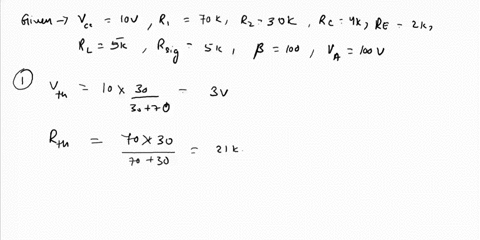 Given → Vcc = 10V , R1 = 70k , R2 = 30k , RC = 4k , RE = 2k,
RL = 5k , Rsig = 5k , β = 100 , VA = 100V
① Vth = 10 × 30/(30+70) = 3V
Rth = 70×30/(70+30) = 21k.